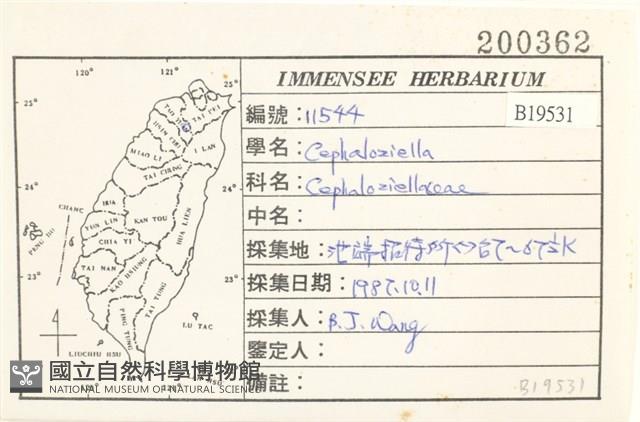 200362
IMMENSEE HERBARIUM
編號：11544
B19531
學名：Cephaloziella
科名：Cephaloziellaceae
中名：
採集地：池端招待所
採集日期：1987.10.11
採集人：B.J. Wang
鑒定人：
備註：
B19531
120° 121°
25° 25°
24° 24°
23° 23°
TAI PEI
I LAN
MIAO LI
TAI CHUNG
CHANG
HUA
YUN LIN
NAN TOU
HUA LIEN
CHIA YI
PENG HU
TAI NAN
KAO HSIUNG
TAI TUNG
PING TUNG
LU TAO
LIUCHIU HSU
國立自然科學博物館
NATIONAL MUSEUM OF NATURAL SCIENCE